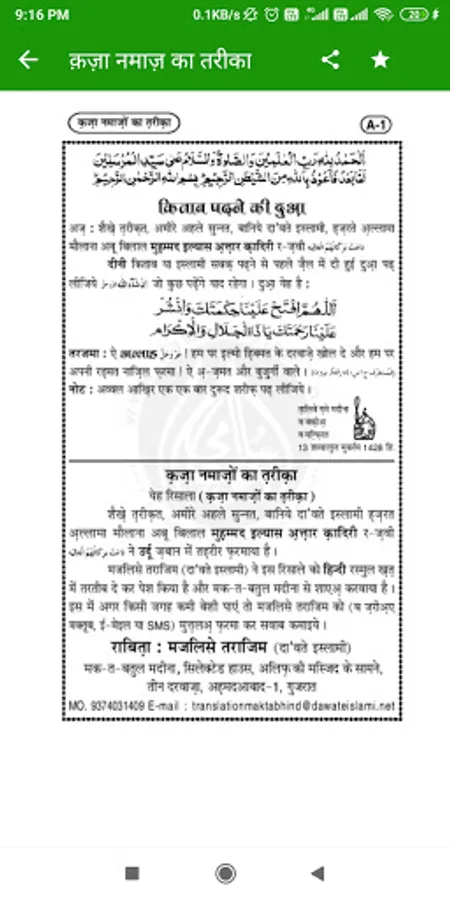 9:16 PM
0.1KB/s
20
क़ज़ा नमाज़ का तरीका
क़ज़ा नमाज़ों का त़रीक़ा
A-1
اَلْحَمْدُ لِلّٰهِ رَبِّ الْعٰلَمِيْنَ وَالصَّلٰوةُ وَالسَّلَامُ عَلٰى سَيِّدِ الْمُرْسَلِيْنَ
اَمَّا بَعْدُ فَاَعُوْذُ بِاللّٰهِ مِنَ الشَّيْطٰنِ الرَّجِيْمِ بِسْمِ اللّٰهِ الرَّحْمٰنِ الرَّحِيْمِ
किताब पढ़ने की दुआ़
अज़् : शैख़े त़रीक़त, अमीरे अहले सुन्नत, बानिये दा'वते इस्लामी, ह़ज़रते अ़ल्लामा
मौलाना अबू बिलाल मुह़म्मद इल्यास अ़त्त़ार क़ादिरी र-ज़वी
दीनी किताब या इस्लामी सबक़ पढ़ने से पहले ज़ैल में दी हुई दुआ़ पढ़
लीजिये जो कुछ पढ़ेंगे याद रहेगा । दुआ़ येह है :
اَللّٰهُمَّ افْتَحْ عَلَيْنَا حِكْمَتَكَ وَانْشُرْ
عَلَيْنَا رَحْمَتَكَ يَا ذَا الْجَلَالِ وَالْاِكْرَام
तरजमा : ऐ عَزَّوَجَلَّ ! हम पर इ़ल्मो ह़िक्मत के दरवाज़े खोल दे और हम पर
अपनी रह़मत नाज़िल फ़रमा ! ऐ अ़-ज़मत और बुज़ुर्गी वाले ।
नोट : अव्वल आख़िर एक एक बार दुरूद शरीफ़ पढ़ लीजिये ।
त़ालिबे ग़मे मदीना
व बक़ीअ़
व मग़्फ़िरत
13 शव्वालुल मुकर्रम 1428 हि.
क़ज़ा नमाज़ों का त़रीक़ा
येह रिसाला (क़ज़ा नमाज़ों का त़रीक़ा)
शैख़े त़रीक़त, अमीरे अहले सुन्नत, बानिये दा'वते इस्लामी ह़ज़रत
अ़ल्लामा मौलाना अबू बिलाल मुह़म्मद इल्यास अ़त्त़ार क़ादिरी र-ज़वी
ने उर्दू ज़बान में तह़रीर फ़रमाया है ।
मजलिसे तराजिम (दा'वते इस्लामी) ने इस रिसाले को हिन्दी रस्मुल ख़त़
में तरतीब दे कर पेश किया है और मक-त-बतुल मदीना से शाएअ़ करवाया है ।
इस में अगर किसी जगह कमी बेशी पाएं तो मजलिसे तराजिम को (ब ज़रीअ़ए
मक्तूब, ई-मेइल या SMS) मुत्त़लअ़ फ़रमा कर सवाब कमाइये ।
राबित़ा : मजलिसे तराजिम (दा'वते इस्लामी)
मक-त-बतुल मदीना, सिलेक्टेड हाउस, अलिफ़ की मस्जिद के सामने,
तीन दरवाज़ा, अह़मदआबाद-1, गुजरात
MO. 9374031409 E-mail : translationmaktabhind@dawateislami.net